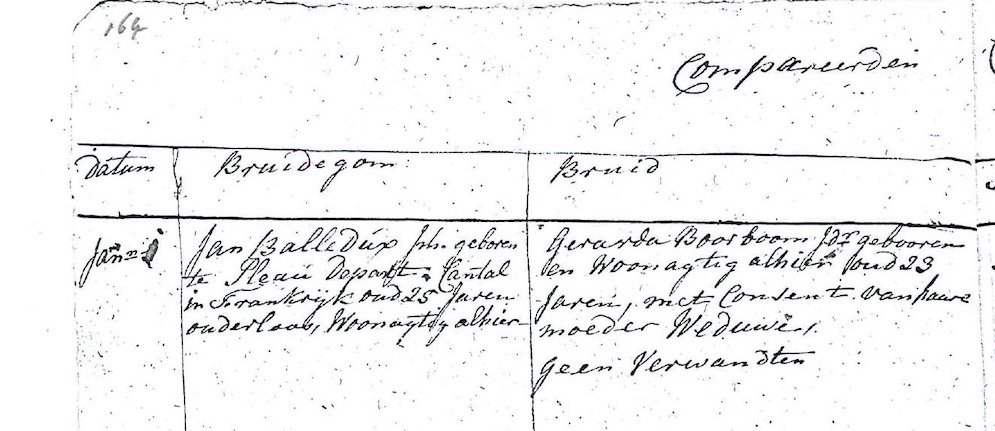 164
Compareerden
datum
Bruidegom
Bruid
Jann
Jan Balledux Jm. geboren
te Pleau Depart. Cantal
in Frankrijk oud 25 Jaren
ouderloos, Woonagtig alhier
Gerarda Boorboom Jdr gebooren
en Woonagtig alhier oud 23
Jaren, met Consent van haare
moeder Weduwe,
geen Verwandten